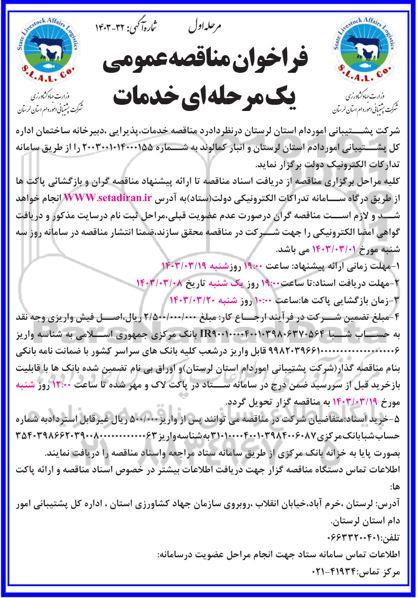 مرحله اول شماره آگهی: ۳۲-۱۴۰۳
State Livestock Affairs Logistics
S.L.A.L. Co.
وزارت جهاد کشاورزی
شرکت پشتیبانی امور دام استان لرستان
State Livestock Affairs Logistics
S.L.A.L. Co.
وزارت جهاد کشاورزی
شرکت پشتیبانی امور دام استان لرستان
فراخوان مناقصه عمومی
یک مرحله ای خدمات
شرکت پشتیبانی اموردام استان لرستان درنظردارد مناقصه خدمات،پذیرایی ،دبیرخانه ساختمان اداره
کل پشتیبانی اموردام استان لرستان و انبار کمالوند به شماره ۲۰۰۳۰۰۱۰۱۴۰۰۰۱۵۵ را از طریق سامانه
تدارکات الکترونیکی دولت برگزار نماید.
کلیه مراحل برگزاری مناقصه از دریافت اسناد مناقصه تا ارائه پیشنهاد مناقصه گران و بازگشائی پاکت ها
از طریق درگاه سامانه تدراکات الکترونیکی دولت(ستاد)به آدرس WWW.setadiran.ir انجام خواهد
شد و لازم است مناقصه گران درصورت عدم عضویت قبلی،مراحل ثبت نام درسایت مذکور و دریافت
گواهی امضا الکترونیکی را جهت شرکت در مناقصه محقق سازند،ضمنا انتشار مناقصه در سامانه روز سه
شنبه مورخ ۱۴۰۳/۰۳/۰۱ می باشد.
۱-مهلت زمانی ارائه پیشنهاد: ساعت ۱۹:۰۰ روزشنبه ۱۴۰۳/۰۳/۱۹
۲-مهلت دریافت اسناد:تا ساعت۱۹:۰۰ روز یک شنبه تاریخ ۱۴۰۳/۰۳/۰۸
۳-زمان بازگشایی پاکت ها:ساعت ۱۰:۰۰ روز شنبه ۱۴۰۳/۰۳/۲۰
۴-مبلغ تضمین شرکت در فرآیند ارجاع کار: مبلغ ۲/۵۰۰/۰۰۰/۰۰۰ ریال،اصل فیش واریزی وجه نقد
بانک مرکزی جمهوری اسلامی به شناسه واریز
قابل واریز درشعب کلیه بانک های سراسر کشور یا ضمانت نامه بانکی
بنام مناقصه گذار(شرکت پشتیبانی اموردام استان لرستان)و اوراق بی نام تضمین شده بانک ها با قابلیت
بازخرید قبل از سررسید ضمن درج در سامانه ستاد در پاکت لاک و مهر شده تا ساعت ۱۲:۰۰ روز شنبه
مورخ ۱۴۰۳/۰۳/۱۹ به مناقصه گزار تحویل گردد.
۵-خرید اسناد:متقاضیان شرکت در مناقصه می توانند پس از واریز ۵۰۰/۰۰۰ ریال غیرقابل استردادبه شماره
حساب شبابانک مرکزی
بصورت پایا به خزانه بانک مرکزی از طریق سامانه ستاد مراجعه واسناد مناقصه را دریافت نمایند.
اطلاعات تماس دستگاه مناقصه گزار جهت دریافت اطلاعات بیشتر در خصوص اسناد مناقصه و ارائه پاکت
ها:
آدرس: لرستان ،خرم آباد،خیابان انقلاب ،روبروی سازمان جهاد کشاورزی استان ، اداره کل پشتیبانی امور
دام استان لرستان.
تلفن:۰۶۶۳۳۲۰۰۴۰۱
اطلاعات تماس سامانه ستاد جهت انجام مراحل عضویت درسامانه:
مرکز تماس:۴۱۹۳۴-۰۲۱